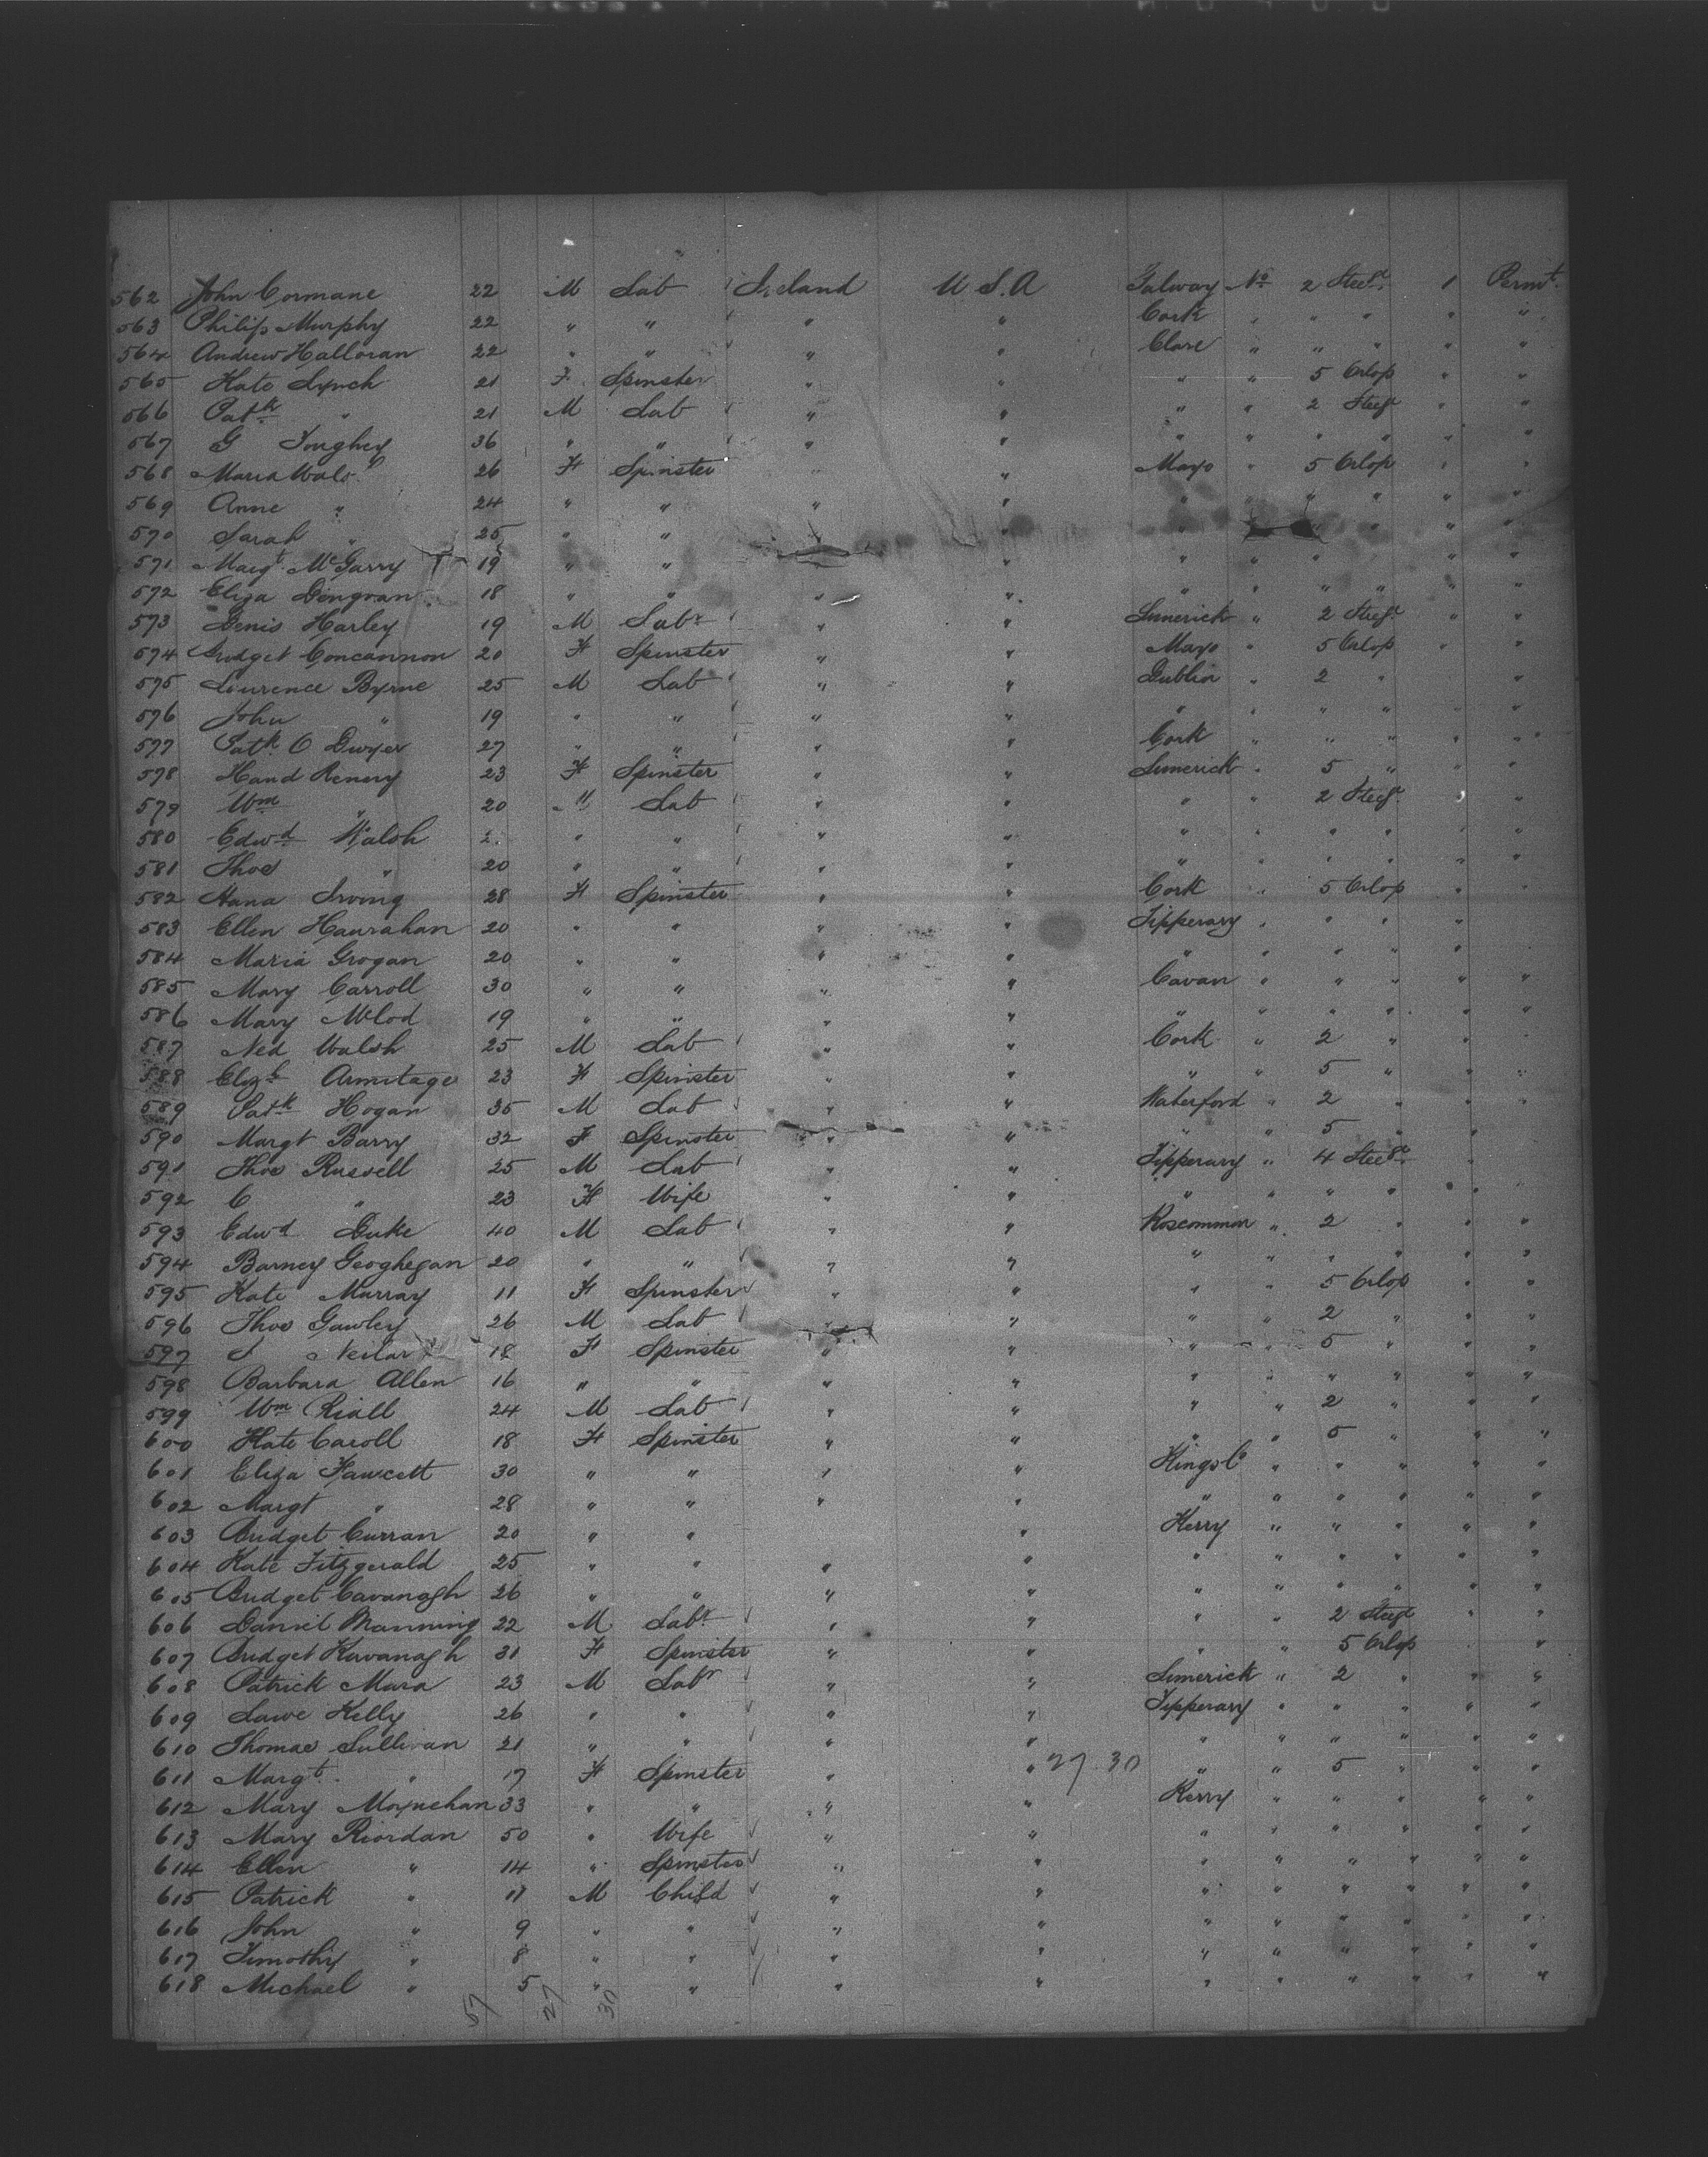 562 John Cormane 22 M Lab Ireland U S. A Galway No 2 Steege 1 Permt.
563 Philip Murphy 22 " " " " Cork " " " " "
564 Andrew Halloran 22 " " " " Clare " " " " "
565 Kate Lynch 21 F. Spinster " " " " 5 Orlop " "
566 Patk " 21 M Lab " " " " 2 Steege " "
567 G 36 " " " " " " " " " "
568 Maria Wals 26 F Spinster " " Mayo " 5 Orlop " "
569 Anne " 24 " " " " " " " " "
570 Sarah " 25 " " " " " " " "
571 Margt. McGarry 19 " " " " " " " "
572 Eliza 18 " " " " " " " " "
573 Denis Harley 19 M Labr " " Limerick " 2 Steege " "
574 Bridget Concannon 20 F Spinster " " Mayo " 5 Orlop " "
575 Laurence Byrne 25 M Lab " " Dublin " 2 " "
576 John " 19 " " " " " " " " " "
577 Patk O Dwyer 27 " " " " Cork " " " " "
578 23 F Spinster " " Limerick " 5 " " "
579 Wm " 20 M Lab " " " " 2 Steege " "
580 Edwd Walsh " " " " " " " " " "
581 Thos " 20 " " " " " " " " " "
582 Hana Irving 28 F Spinster " " Cork " 5 Orlop " "
583 Ellen Hanrahan 20 " " " " Tipperary " " " "
584 Maria Grogan 20 " " " " " " " " "
585 Mary Carroll 30 " " " " Cavan " " " " "
586 Mary 19 " " " " " " " " " "
587 Ned Walsh 25 M Lab " " Cork " 2 " "
588 Elizth Armitage 23 F Spinster " " " " 5 " " "
589 Patk Hogan 35 M Lab " " Waterford " 2 " " "
590 Margt Barry 32 F Spinster " " " " 5 " "
591 Thos Russell 25 M Lab " " Tipperary " 4 Steege "
592 C " 23 F Wife " " " " " " " "
593 Edwd Duke 40 M Lab " " Roscommon " 2 " " "
594 Barney Geoghegan 20 " " " " " " " " " "
595 Kate Murray 11 F Spinster " " " " 5 Orlop " "
596 Thos Gawley 26 M Lab " " " " 2 " " "
597 18 F Spinster " " " " 5 " " "
598 Barbara Allen 16 " " " " " " " " " "
599 Wm Riall 24 M Lab " " " " 2 " " "
600 Kate Caroll 18 F Spinster " " " " 5 " " "
601 Eliza Fawcett 30 " " " " Kings Co " " " " "
602 Margt " 28 " " " " " " " " " "
603 Bridget Curran 20 " " " Kerry " " " " "
604 Kate Fitzgerald 25 " " " " " " " " " "
605 Bridget Cavanagh 26 " " " " " " " " " "
606 Daniel Manning 22 M Labr " " " " 2 Steege " "
607 Bridget Kavanagh 31 F Spinster " " " " 5 Orlop "
608 Patrick Mara 23 M Labr " " Limerick " 2 " " "
609 Lawe Kelly 26 " " " " Tipperary " " " " "
610 Thomas Sullivan 21 " " " " " " " " " "
611 Margt. " 17 F Spinster " " 27. 30 " " 5 " " "
612 Mary Moynehan 33 " " " " Kerry " " " " "
613 Mary Riordan 50 " Wife " " " " " " " "
614 Ellen " 14 " Spinster " " " " " " " "
615 Patrick " 11 M Child " " " " " " " "
616 John " 9 " " " " " " " " " "
617 Timothy " 8 " " " " " " " " " "
618 Michael " 5 " " " " " " " " " "
57 27 30